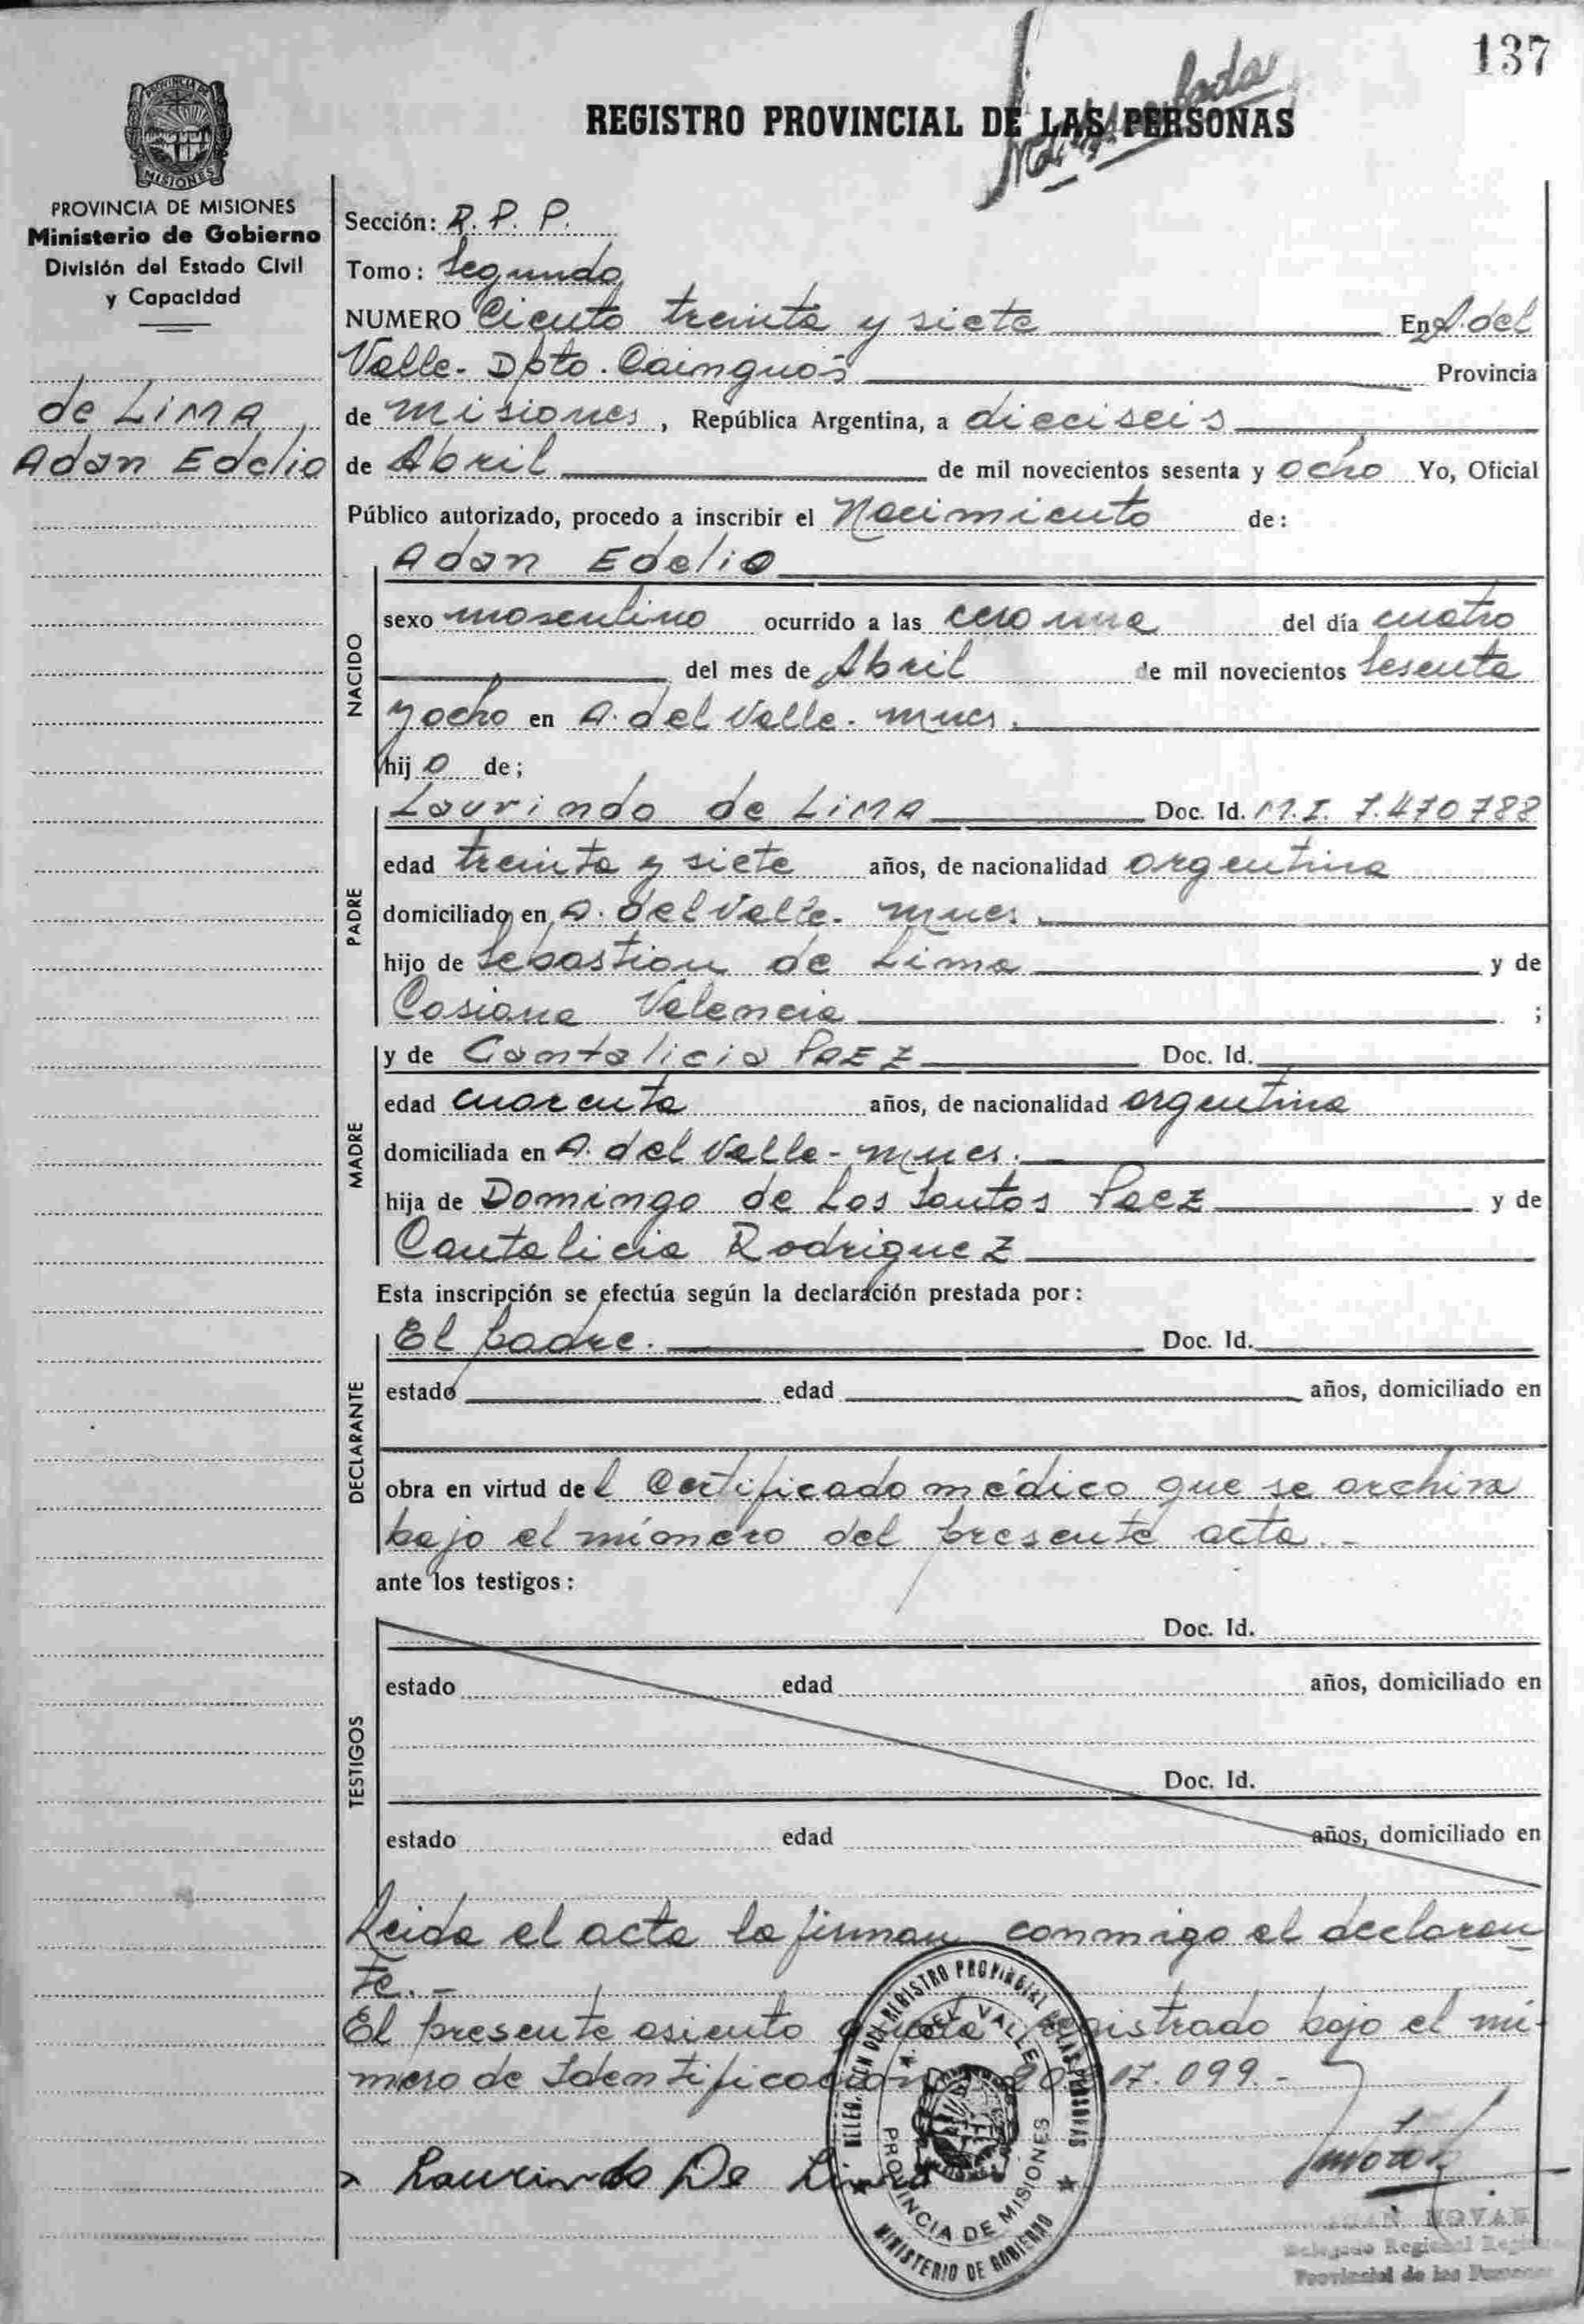 137
REGISTRO PROVINCIAL DE LAS PERSONAS
PROVINCIA DE
MISIONES
PROVINCIA DE MISIONES
Ministerio de Gobierno
División del Estado Civil
y Capacidad
de LIMA,
Adan Edelio
Sección: R. P. P.
Tomo: Segundo
NUMERO Ciento treinta y siete En A. del
Valle - Dpto. Cainguás Provincia
de Misiones, República Argentina, a dieciseis
de Abril de mil novecientos sesenta y ocho Yo, Oficial
Público autorizado, procedo a inscribir el Nacimiento de:
Adan Edelio
NACIDO
sexo masculino ocurrido a las cero una del día cuatro
del mes de Abril de mil novecientos Sesenta
y ocho en A. del Valle - mnes.
hijo de;
PADRE
Laurindo de LIMA Doc. Id. M.I. 7.470788
edad treinta y siete años, de nacionalidad argentina
domiciliado en A. del Valle - mnes.
hijo de Sebastian de Lima y de
Casiana Valencia ;
MADRE
y de Cantalicia PAEZ Doc. Id.
edad cuarenta años, de nacionalidad argentina
domiciliada en A. del Valle - mnes.
hija de Domingo de Los Santos Paez y de
Cantalicia Rodriguez
Esta inscripción se efectúa según la declaración prestada por:
DECLARANTE
El padre. Doc. Id.
estado edad años, domiciliado en
obra en virtud del Certificado médico que se archiva
bajo el número del presente acta. -
ante los testigos:
TESTIGOS
Doc. Id.
estado edad años, domiciliado en
Doc. Id.
estado edad años, domiciliado en
Leida el acta la firman conmigo el declaran
te. -
El presente asiento queda registrado bajo el nú-
mero de Identificación 20.17.099.-
Laurindo De Lima
DELEGACION DEL REGISTRO PROVINCIAL DE LAS PERSONAS
A. DEL VALLE
PROVINCIA DE MISIONES
MINISTERIO DE GOBIERNO
Delegado Regional
Provincial de las Personas